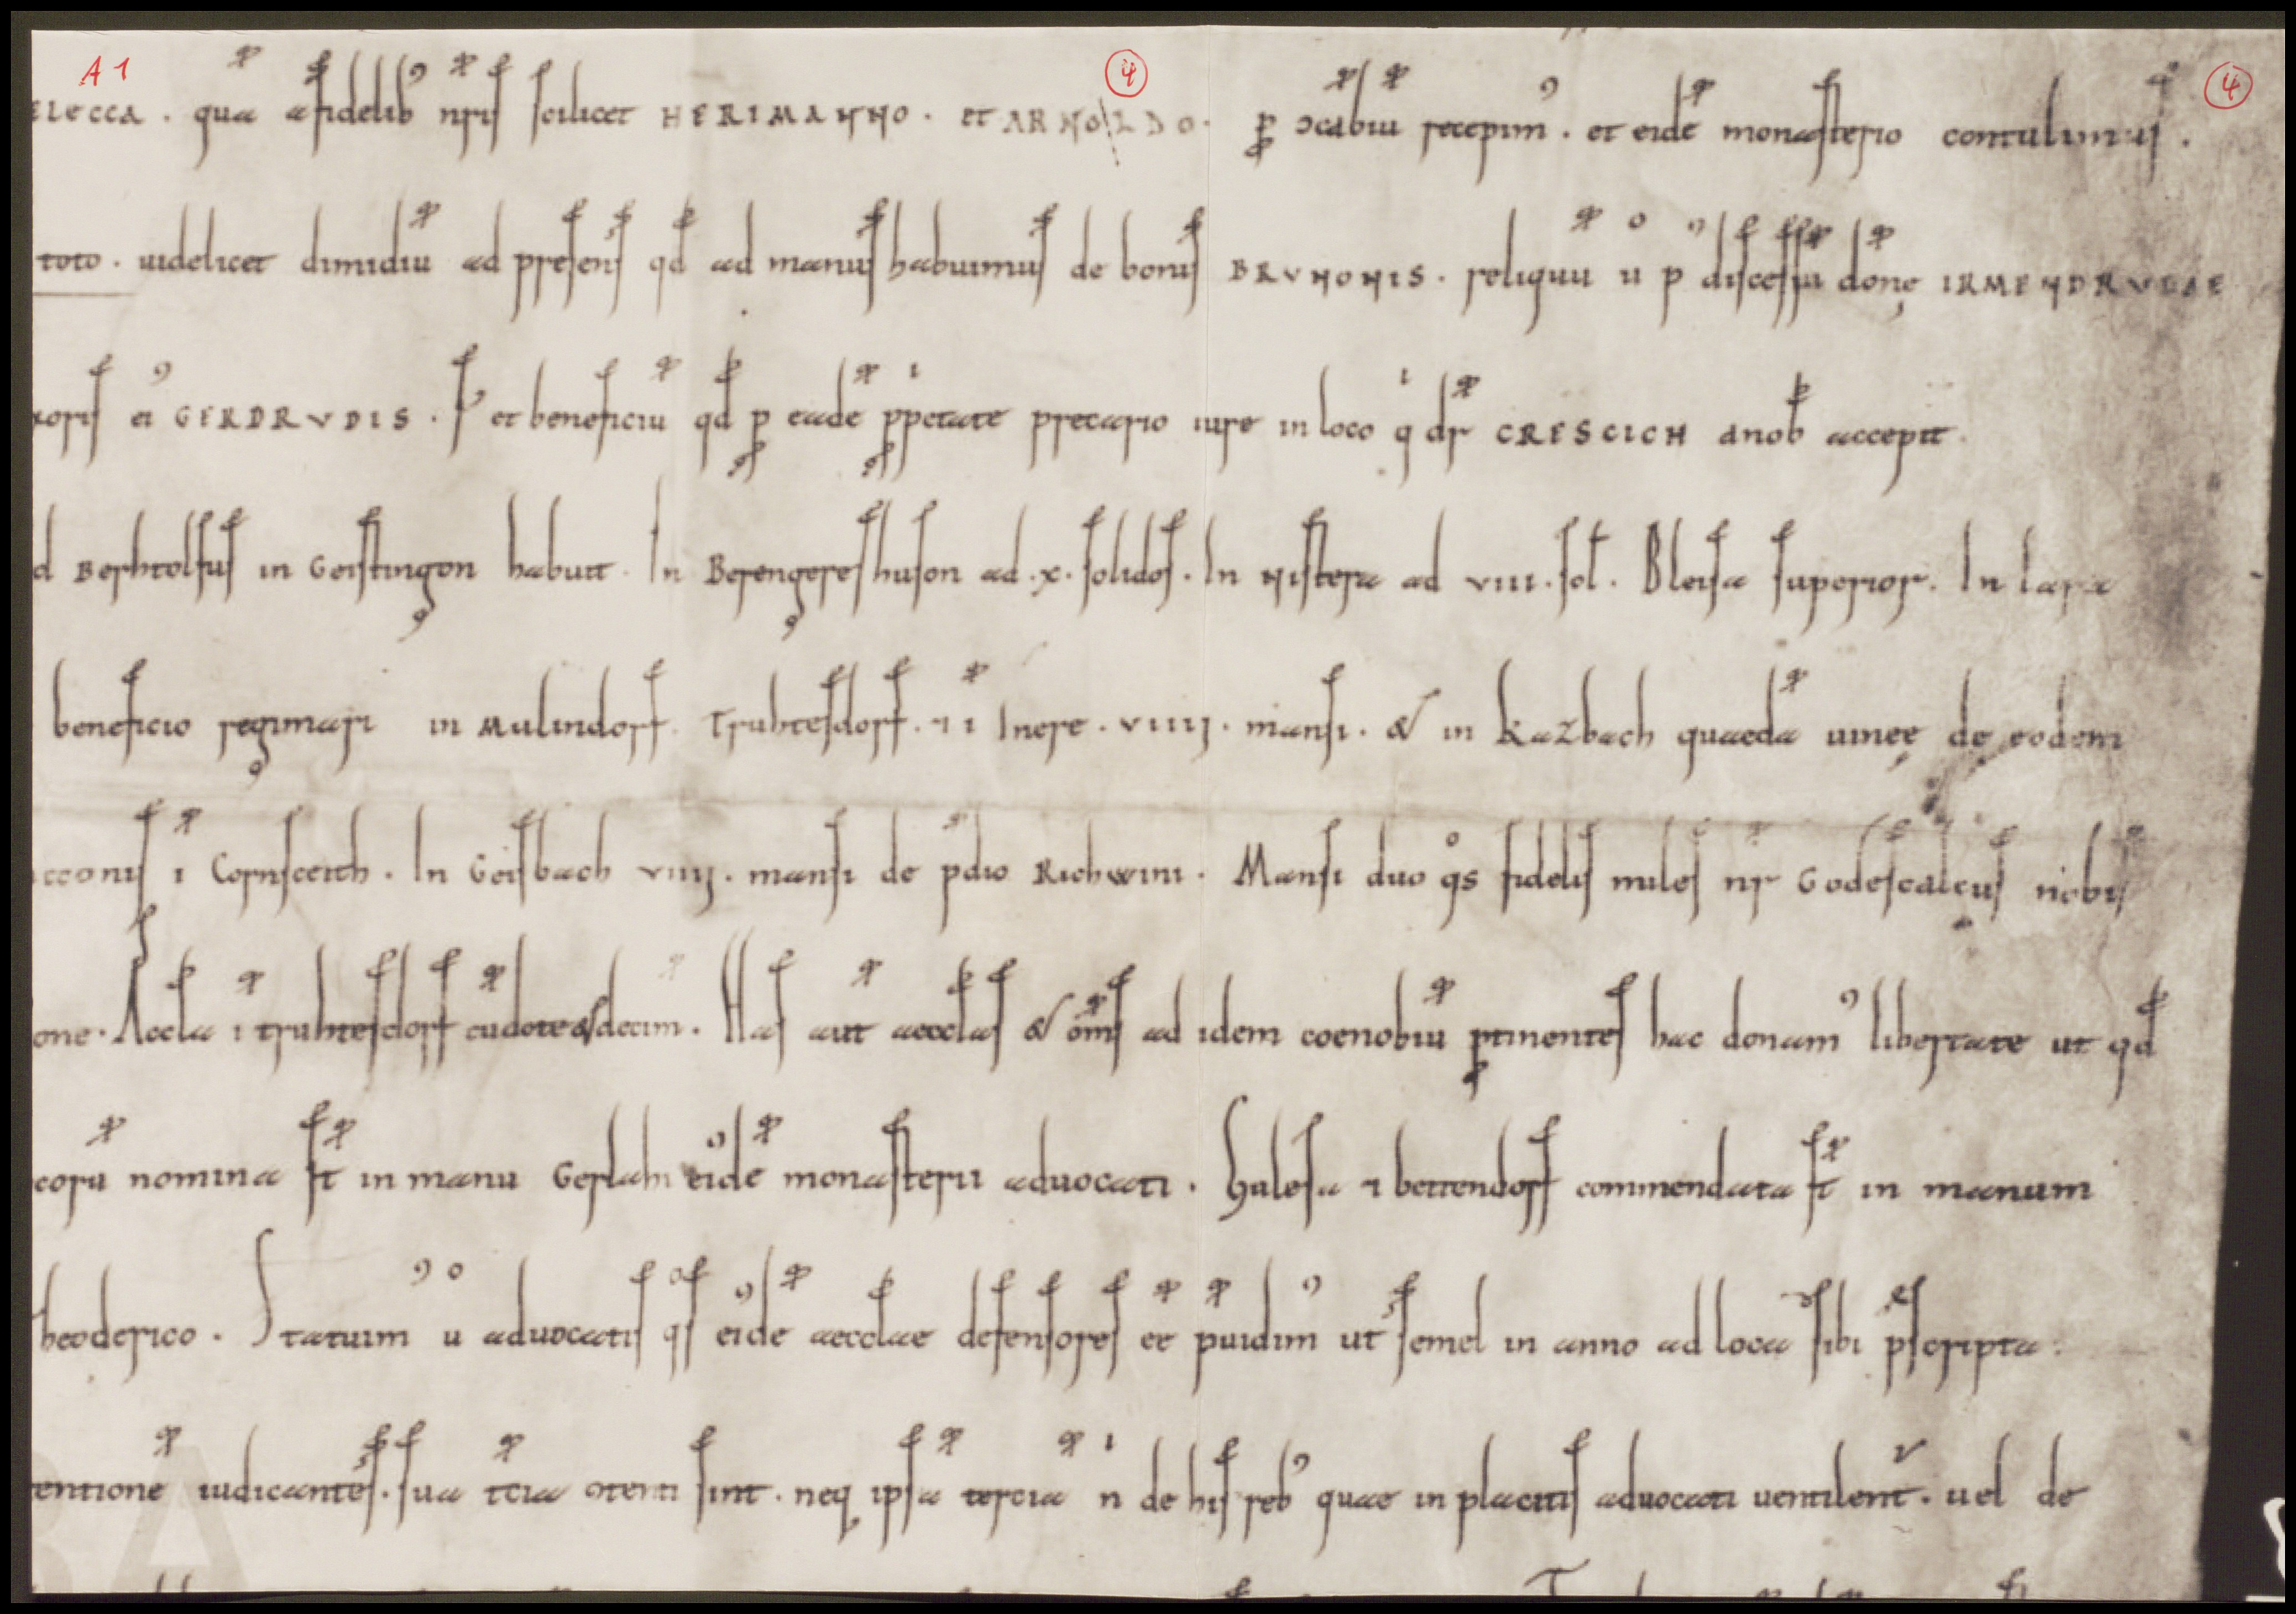 A 1 4 4
ELECCA . quā a fidelib' nr̄is scilicet HERIMANNO . et ARNOLDO . p ɔcābiū recepim' . et eidē monasterio contulimus .
toto . uidelicet dimidiū ad presens qđ ad manus habuimus de bonis BRVNONIS . reliquū ů p' discessū dōnę IRMENDRVDAE
xoris ei' GERDRVDIS . et beneficiū qđ p eadē ppetate precario iure in loco q dr̄ CRESCICH a nob accepit .
d Berhtolfus in Geistingon habuit . In Berengereshuson ad . x . solidos . In Nistera ad VIII . sol . Bleisa superior . In lara
beneficio regimari in Mulindorf . Truhtesdorf . ⁊ ī Inere . VIIII . mansi . & in Kazbach quaedā uineę de eodem
cconis ī Cornsceith . In Geisbach VIIII . mansi de p̄dio Richwini . Mansi duo q°s fidelis miles nr̄ Godescalcus nobis
one . Aeccla ī truhtesdorf cū dote & decim . Has aūt aecclas & om̄s ad idem coenobiū ptinentes hac donam' libertate ut qđ
corū nomina st̄ in manu Gerlahi ei'dē monasterii aduocati . Halesa ⁊ bettendorf commendata st̄ in manum
heoderico . Statuim' ů aduocatis q°s ei'dē aecclae defensores ēē p̄uidim' ut semel in anno ad loca sibi p̄scripta :
tentionē iudicantes . sua t̄cia ɔtenti sint . neq ipsā terciā n de his reb' quae in placitis aduocati uentilent̄ . uel de